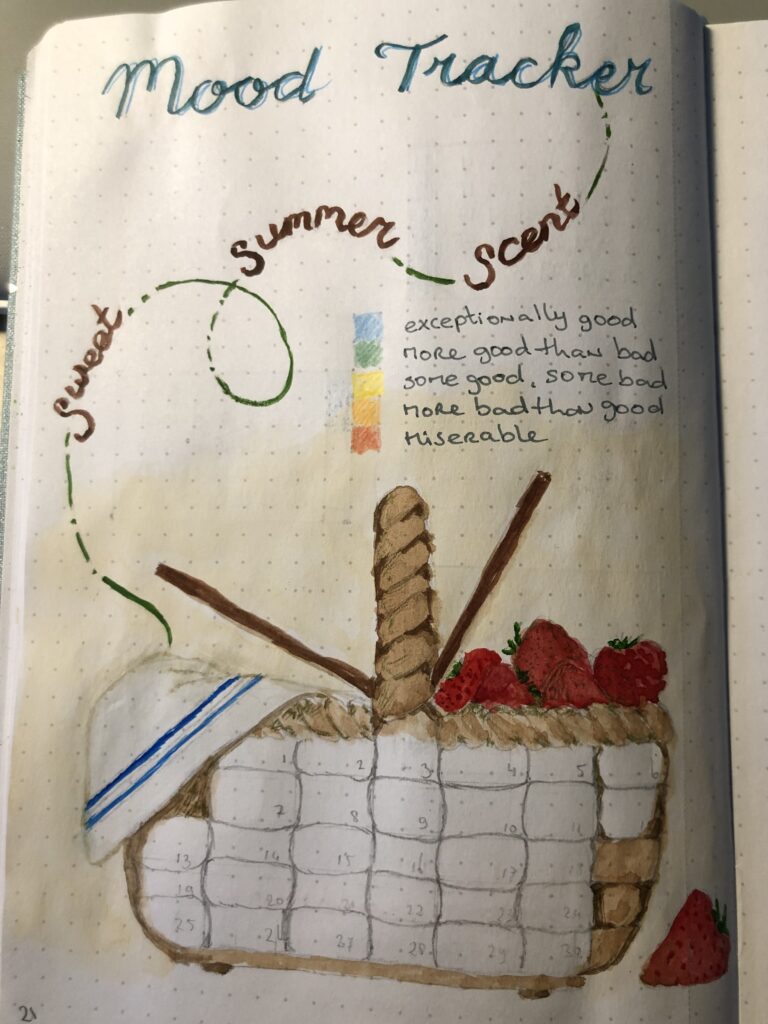 Mood Tracker
Sweet Summer Scent
exceptionally good
more good than bad
some good, some bad
more bad than good
miserable
1 2 3 4 5 6
7 8 9 10 11
13 14 15 16 17 18
19 20 21 22 23 24
25 26 27 28 29 30
21